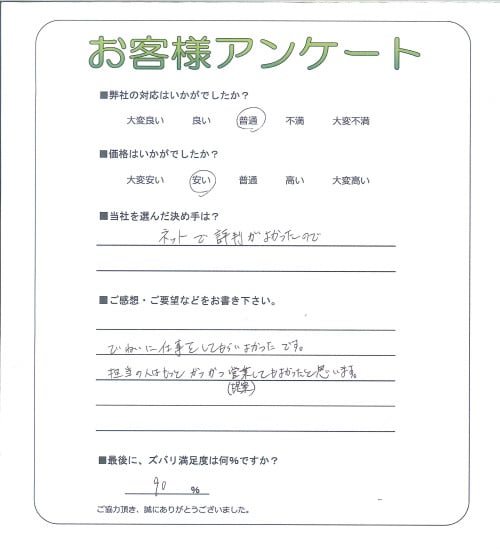 お客様アンケート
■弊社の対応はいかがでしたか？
大変良い 良い 普通 不満 大変不満
■価格はいかがでしたか？
大変安い 安い 普通 高い 大変高い
■当社を選んだ決め手は？
ネットで評判がよかったので
■ご感想・ご要望などをお書き下さい。
ていねいに仕事をしてもらいよかったです。
担当の人はもっとガツガツ営業してもよかったと思います。
(提案)
■最後に、ズバリ満足度は何%ですか？
90 %
ご協力頂き、誠にありがとうございました。